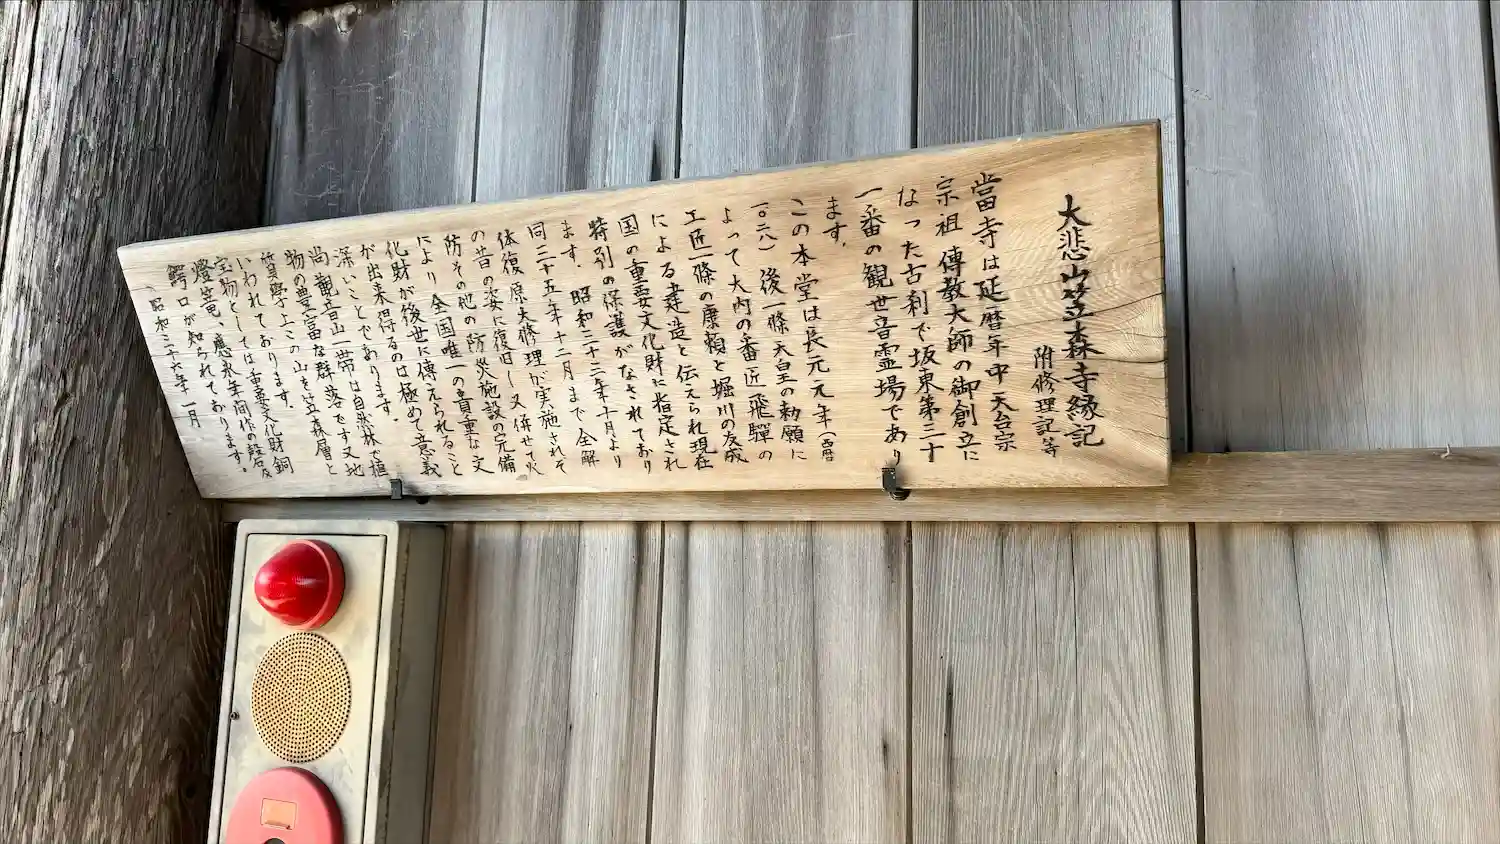 大悲山笠森寺縁記
附修理記等
當寺は延暦年中天台宗
宗祖傳教大師の御創立に
なった古刹で坂東第三十
一番の観世音霊場であり
ます。
この本堂は長元元年（西暦
一〇二八）後一條天皇の勅願に
よって大内の番匠飛驒の
工匠一條の康頼と堀川の友成
による建造と伝えられ現在
国の重要文化財に指定され
特別の保護がなされており
ます。昭和三十二年十月より
同三十五年十二月まで全解
体復原大修理が実施されそ
の昔の姿に復旧し又併せて火
防その他の防災施設の完備
により全国唯一の貴重な文
化財が後世に傳えられること
が出来得るのは極めて意義
深いことであります。
尚観音山一帯は自然林で植
物の豊富な群落です又地
質學上この山を笠森層と
いわれております。
宝物としては重要文化財銅
燈篭、應永年間作の殿石及
鰐口が知られております。
昭和三十六年一月